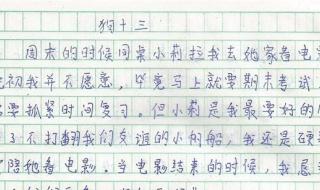 狗十三
周末的时候同桌小莉拉我去她家看电
初我并不愿意，毕竟马上就要期末考试
要抓紧时间复习。但小莉是我最要好的
不打翻我们友谊的小船，我还是硬
陪她看电影。当电影结束的时候，我